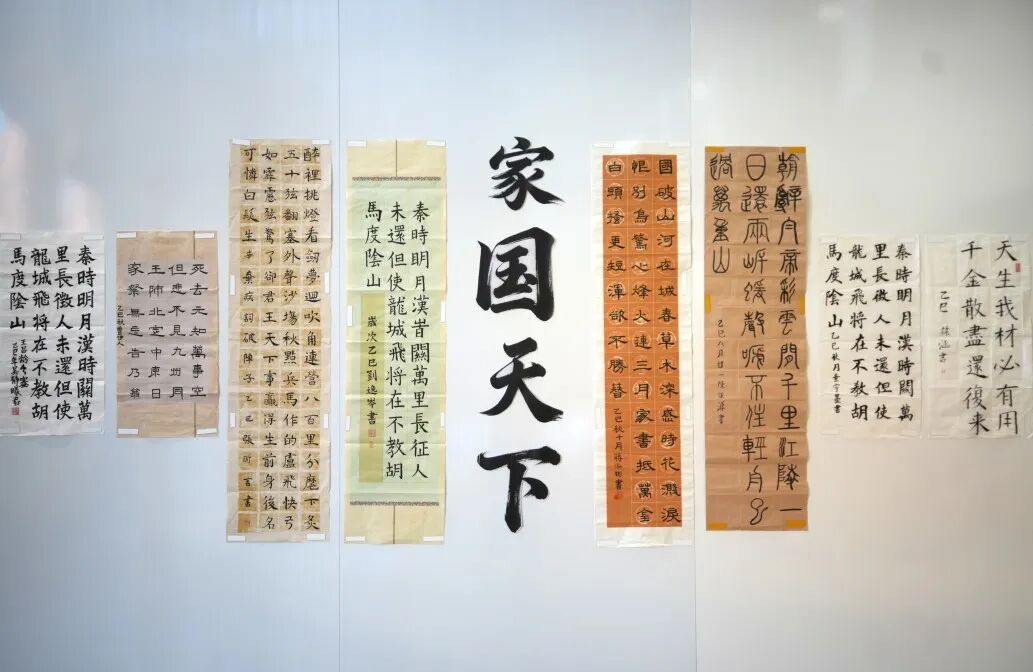 秦時明月漢時關萬
里長徵人未還但使
龍城飛将在不教胡
馬度陰山
死去元知萬事空
但悲不見九州同
王師北定中原日
家祭無忘告乃翁
醉裡挑燈看劍夢迴吹角連營八百里分麾下炙
五十弦翻塞外聲沙場秋點兵馬作的盧飛快弓
如霹靂弦驚了卻君王天下事贏得生前身後名
可憐白髮生辛棄疾詞破陣子乙巳張昕言書
秦時明月漢昔關萬里長征人
未還但使龍城飛将在不教胡
馬度陰山
歲次乙巳劉逸岑書
家国天下
國破山河在城春草木深感時花濺淚
恨別鳥驚心烽火連三月家書抵萬金
白頭搔更短渾欲不勝簪
乙巳秋十月
朝辭白帝彩雲間千里江陵一
日還兩岸猿聲啼不住輕舟已
過萬重山
乙巳八月
秦時明月漢時關萬
里長徵人未還但使
龍城飛將在不教胡
馬度陰山
乙巳秋月
天生我材必有用
千金散盡還復来
乙巳